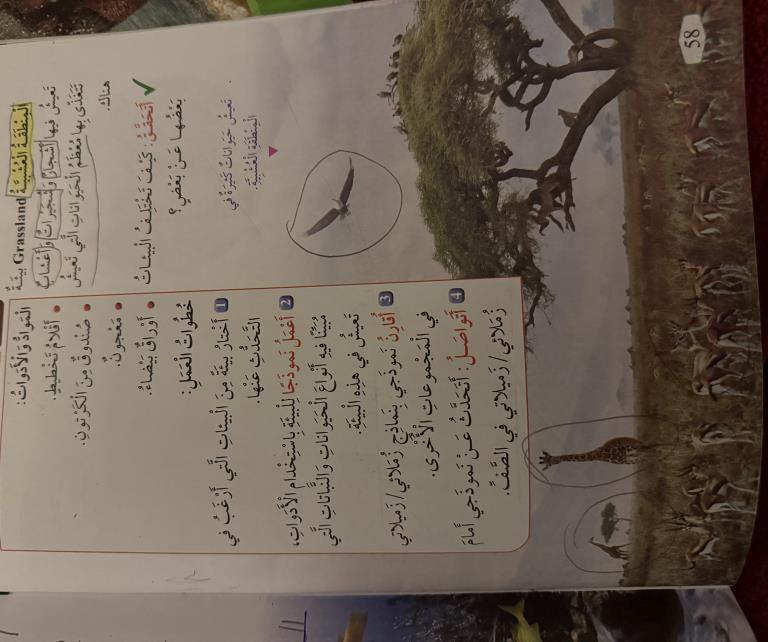 الْمِنْطَقَةُ الْعُشْبِيَّةُ Grassland بيئَةٌ
تَعيشُ فيها أَشْجارٌ وَشُجَيْراتٌ وَأَعْشابٌ
تَتَغَذّى بِها مُعْظَمُ الْحَيَواناتِ الَّتي تَعيشُ
هُناكَ.
أَتَحَقَّقُ: كَيْفَ تَخْتَلِفُ الْبيئاتُ
بَعْضُها عَنْ بَعْضٍ؟
تَعيشُ حَيَواناتٌ كَثيرَةٌ في
الْمِنْطَقَةِ الْعُشْبِيَّةِ.
الْمَوادُّ وَالْأَدَواتُ:
• أَقْلامُ تَخْطيطٍ.
• صُنْدوقٌ مِنَ الْكَرْتونِ.
• مَعْجونٌ.
• أَوْراقٌ بَيْضاءُ.
خُطُواتُ الْعَمَلِ:
1 أَخْتارُ بيئَةً مِنَ الْبيئاتِ الَّتي أَرْغَبُ في
التَّحَدُّثِ عَنْها.
2 أَعْمَلُ نَموذَجًا لِلْبيئَةِ بِاسْتِخْدامِ الْأَدَواتِ،
مُبَيِّنًا فيهِ أَنْواعَ الْحَيَواناتِ وَالنَّباتاتِ الَّتي
تَعيشُ في هذِهِ الْبيئَةِ.
3 أُقارِنُ نَموذَجي بِنَماذِجِ زُمَلائي/ زَميلاتي
في الْمَجْموعاتِ الْأُخْرى.
4 أَتَواصَلُ: أَتَحَدَّثُ عَنْ نَموذَجي أَمامَ
زُمَلائي/ زَميلاتي في الصَّفِّ.
58